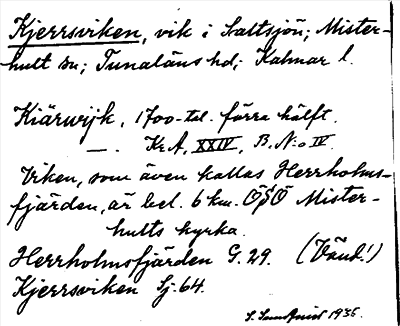 Kjerrsviken, vik i Saltsjön; Mister-
hult sn; Tunaläns hd; Kalmar l.
Kiärwijk, 1700-tal. förra hälft.
—. Kr. A, XXIV, B. N:o IV.
Viken, som även kallas Herrholms-
fjärden, är bel. 6 km. ÖSÖ Mister-
hults kyrka.
Herrholmsfjärden G. 29. (Vänd!)
Kjerrsviken Sj. 64.
1936